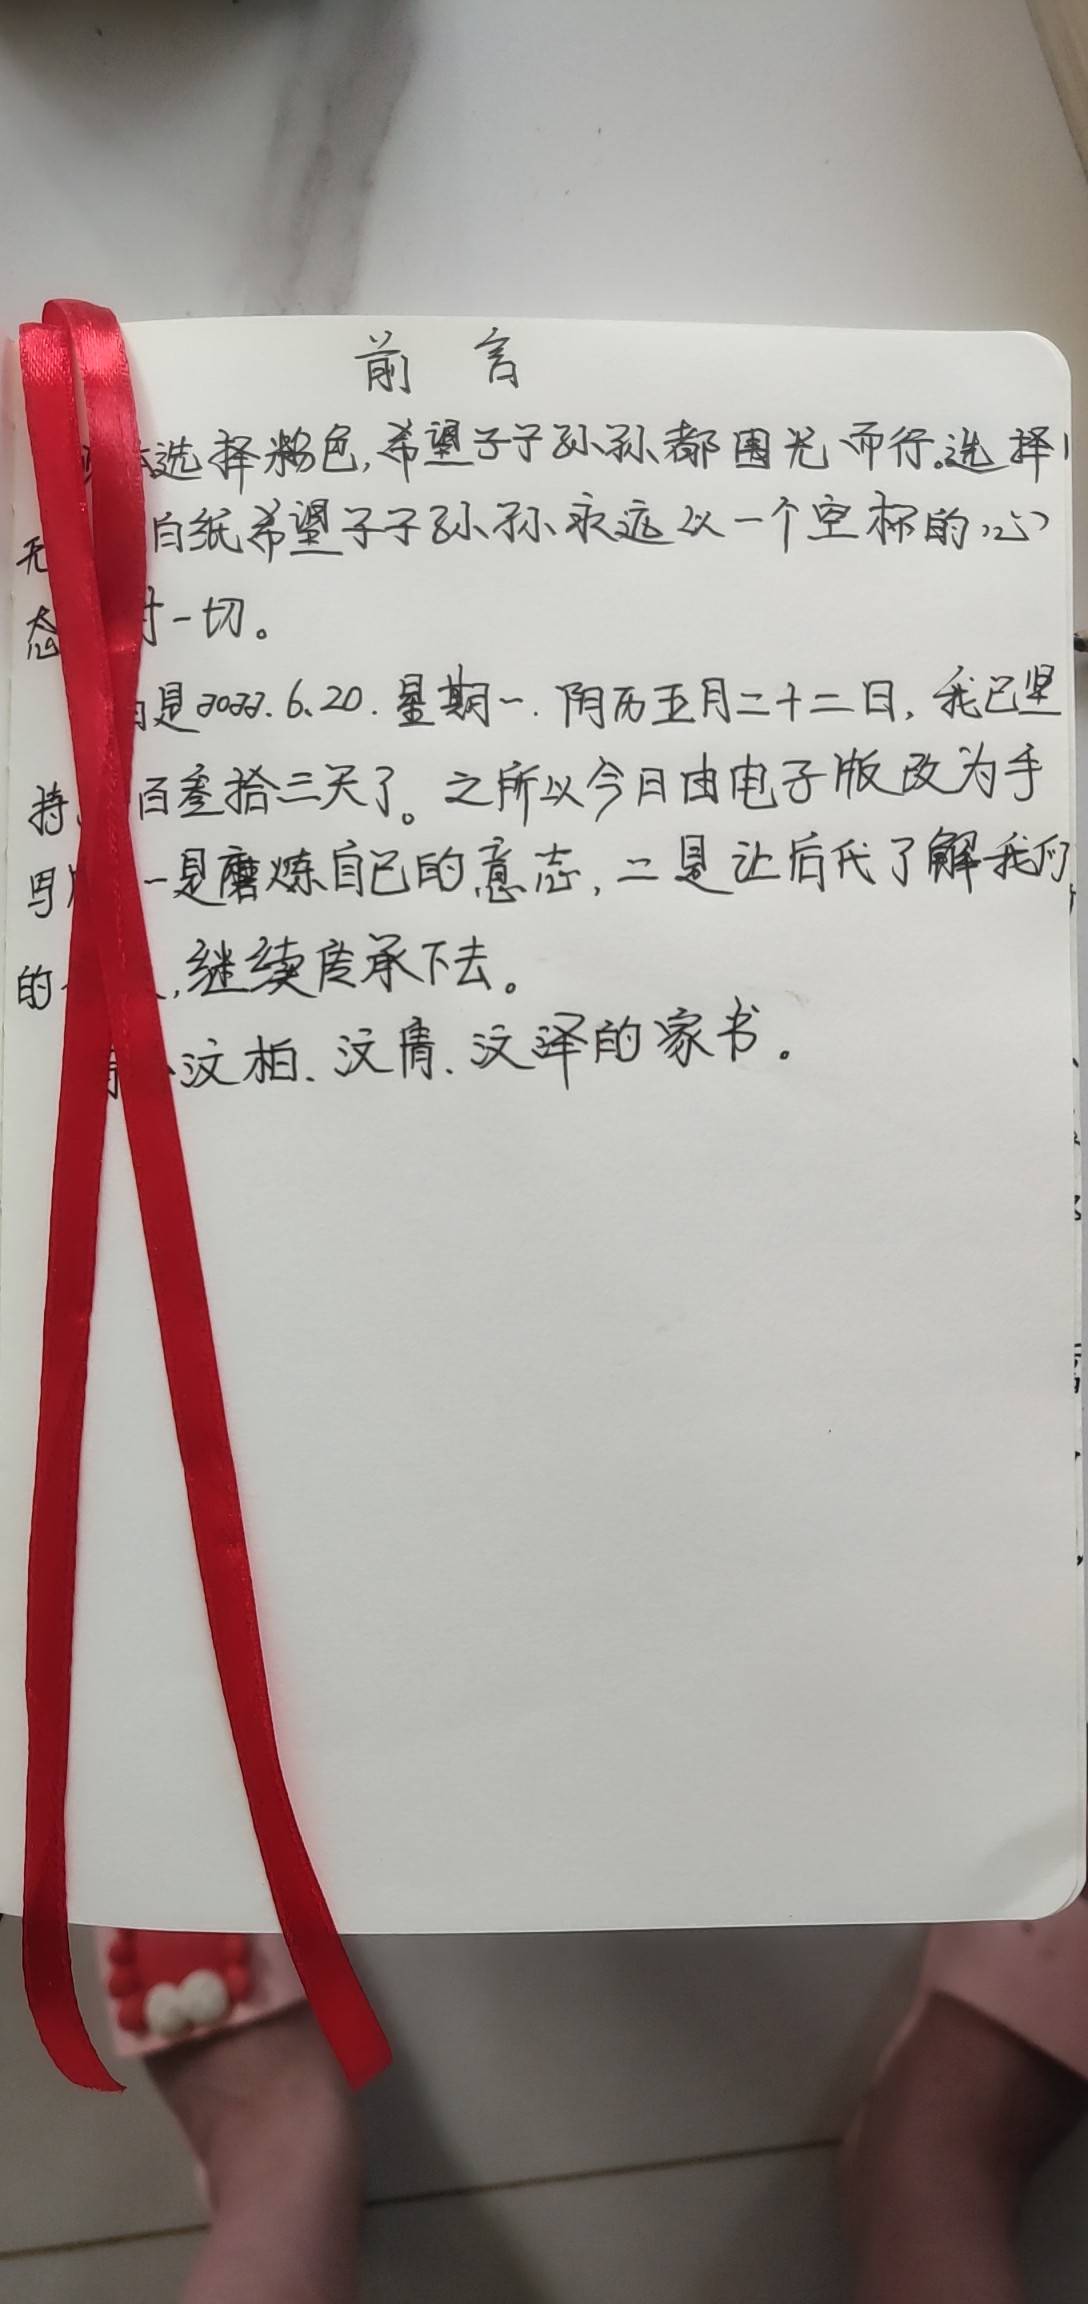 前 言
选择粉色,希望子子孙孙都围光而行。选择
无 白纸希望子子孙孙永远以一个空杯的心
态 对一切。
的是2022.6.20.星期一.阴历五月二十二日,我已坚
持 百叁拾三天了。之所以今日由电子版改为手
写 一是磨炼自己的意志,二是让后代了解我们
的 ,继续传承下去。
汶柏.汶倩.汶泽的家书。